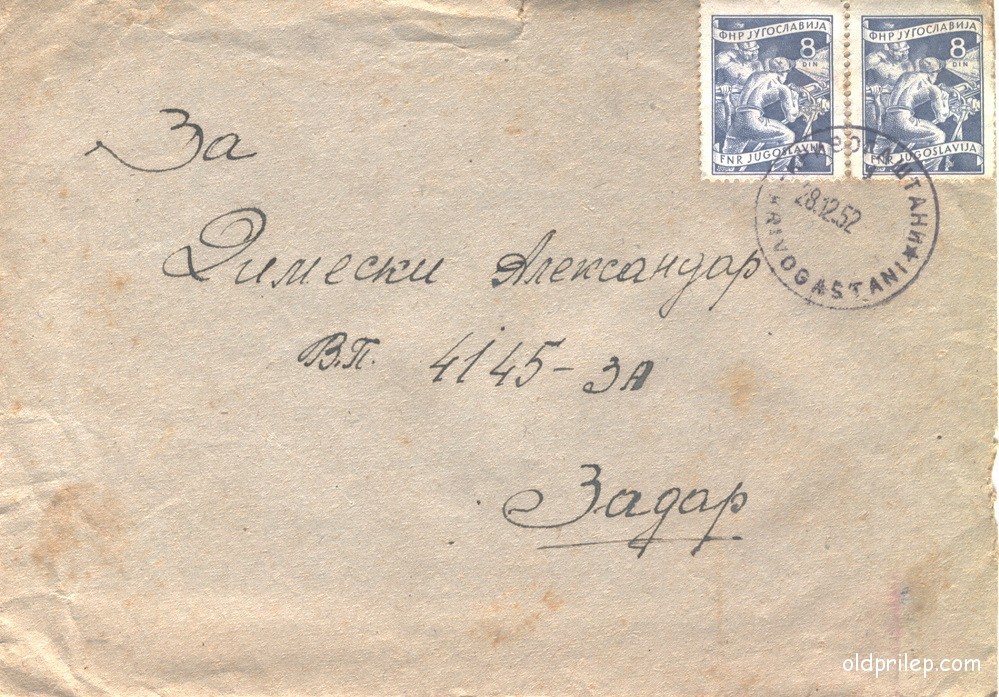 ФНР ЈУГОСЛАВИЈА
8
DIN
FNR JUGOSLAVIJA
ФНР ЈУГОСЛАВИЈА
8
DIN
FNR JUGOSLAVIJA
28.12.52
KRIVOGASTANI
За
Димески Александар
В.П. 4145-ЗА
Задар
oldprilep.com